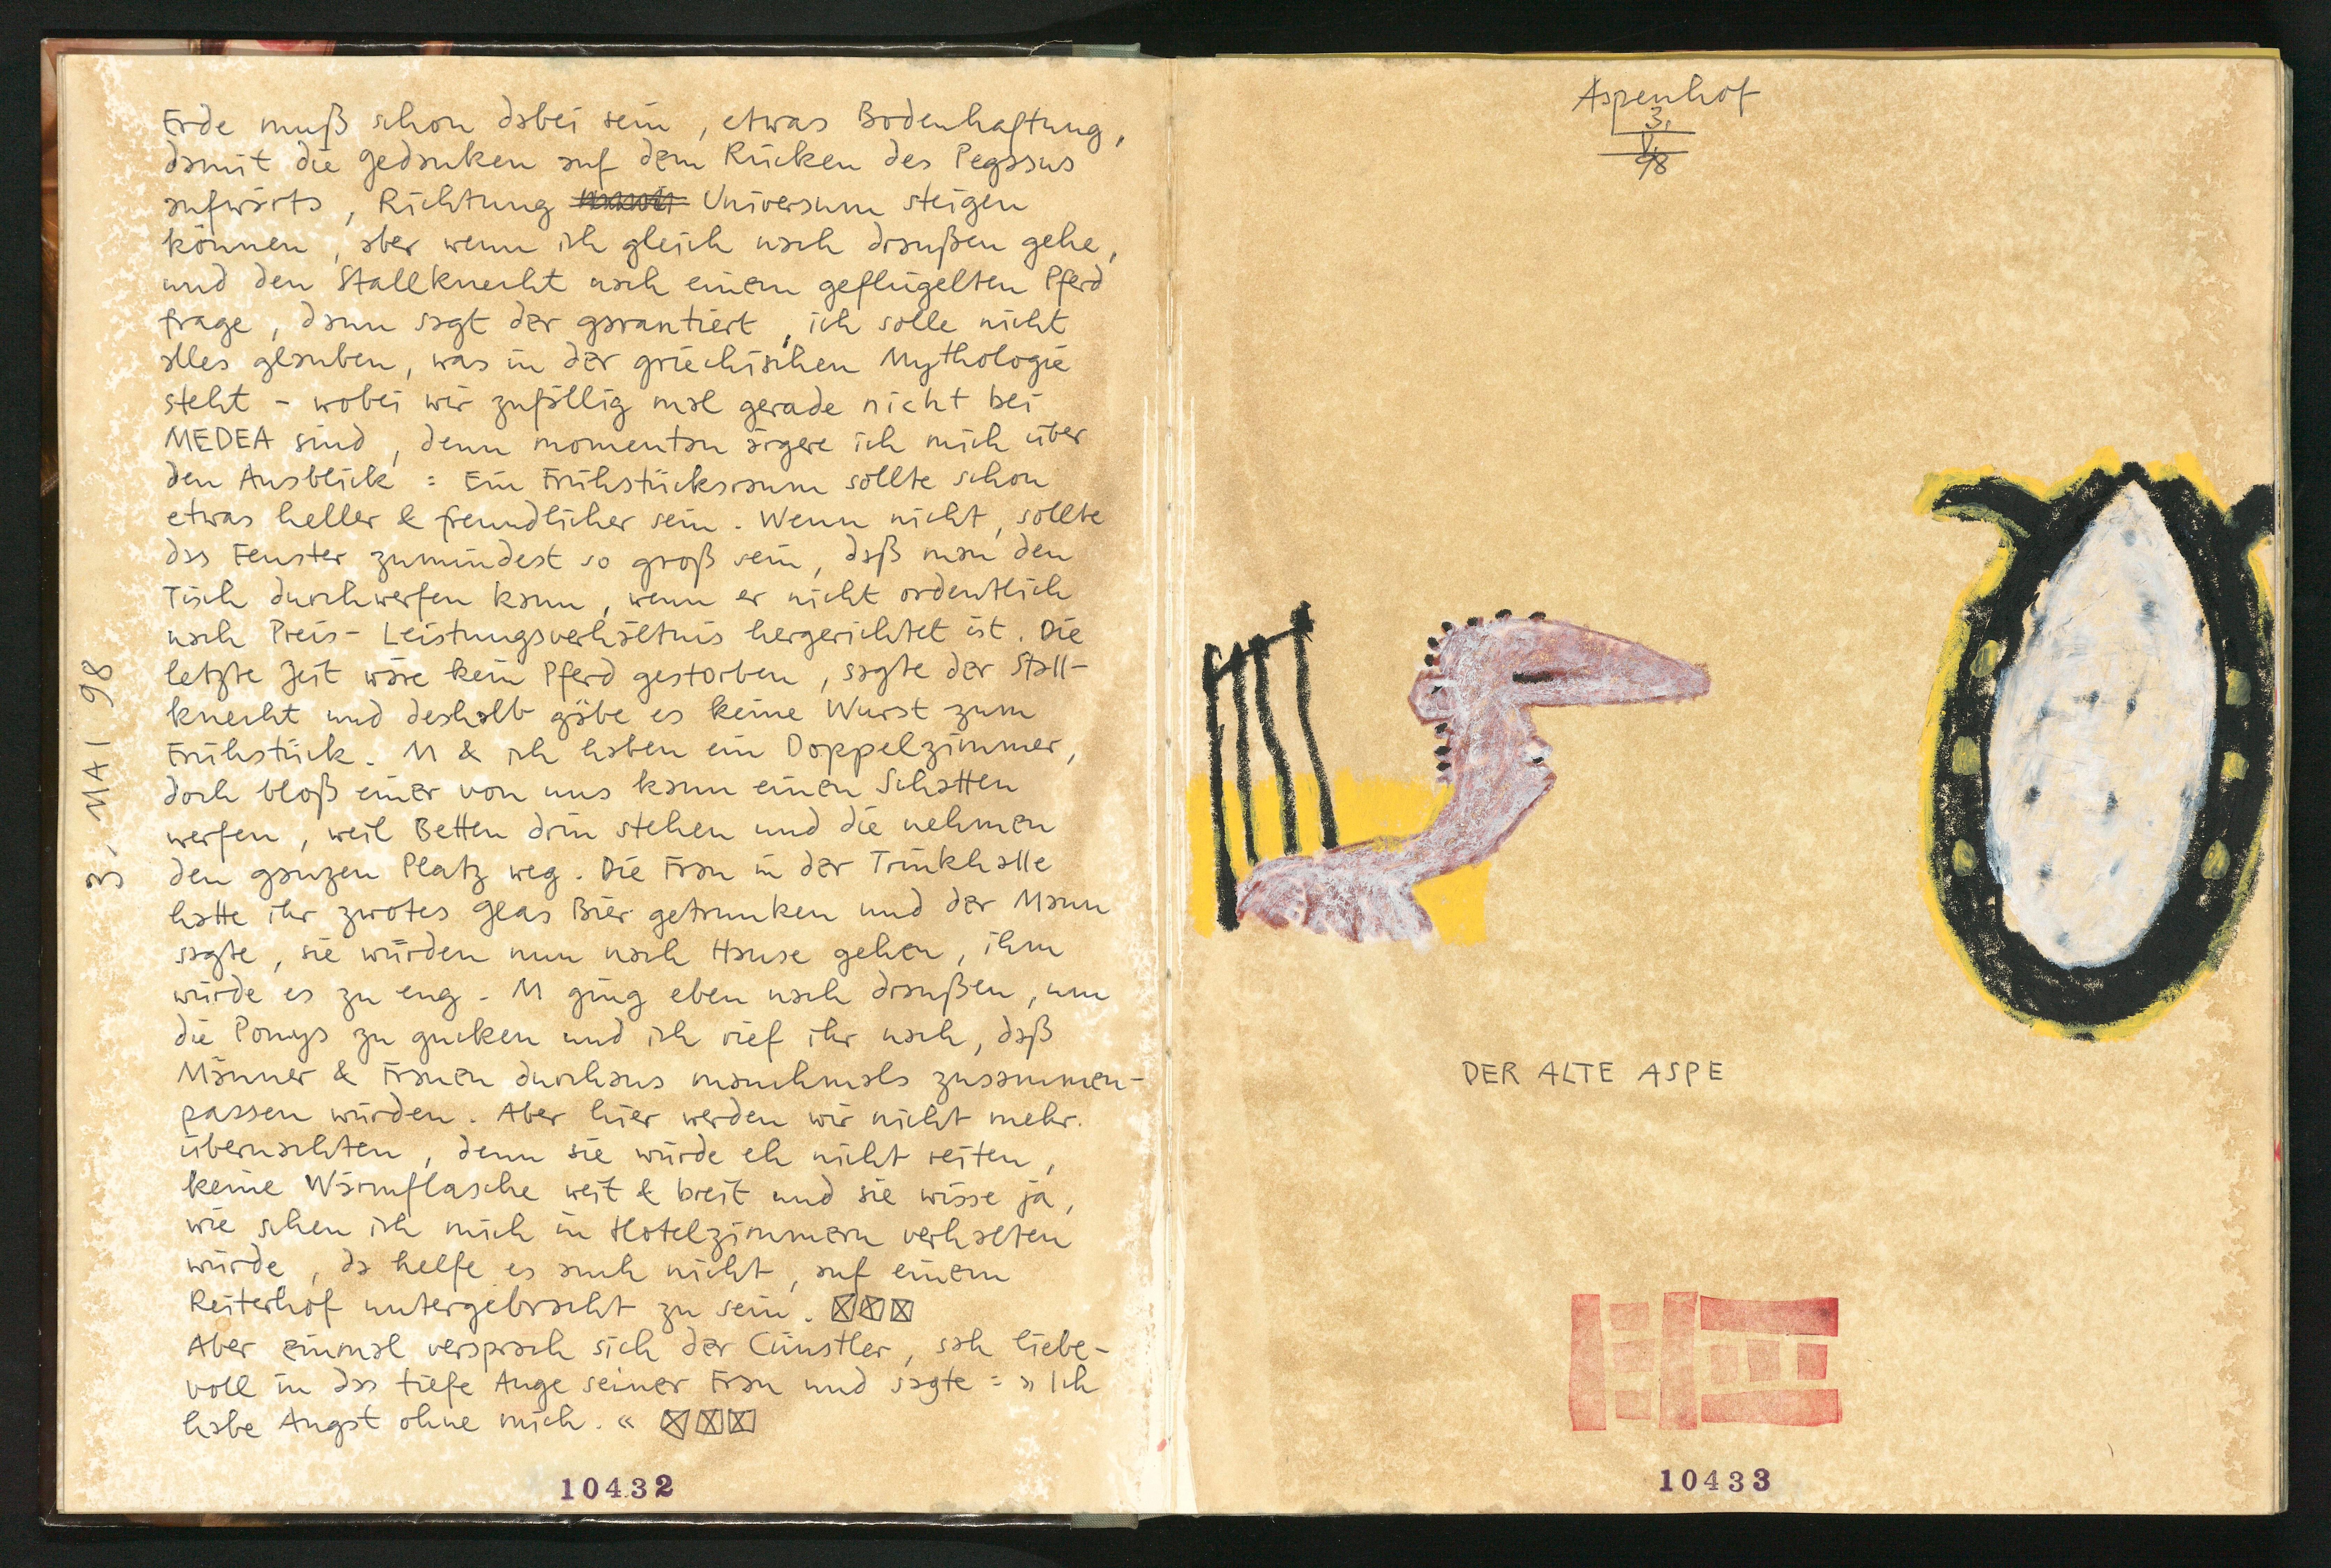 3. MAI 98
Erde muß schon dabei sein, etwas Bodenhaftung,
damit die Gedanken auf dem Rücken des Pegasus
aufwärts, Richtung Universum steigen
können, aber wenn ich gleich nach draußen gehe,
und den Stallknecht nach einem geflügelten Pferd
frage, dann sagt der garantiert, ich solle nicht
alles glauben, was in der griechischen Mythologie
steht - wobei wir zufällig mal gerade nicht bei
MEDEA sind, denn momentan ärgere ich mich über
den Ausblick: Ein Frühstücksraum sollte schon
etwas heller & freundlicher sein. Wenn nicht, sollte
das Fenster zumindest so groß sein, daß man den
Tisch durchwerfen kann, wenn er nicht ordentlich
nach Preis-Leistungsverhältnis hergerichtet ist. Die
letzte Zeit wäre kein Pferd gestorben, sagte der Stall-
knecht und deshalb gäbe es keine Wurst zum
Frühstück. M & ich haben ein Doppelzimmer,
doch bloß einer von uns kann einen Schatten
werfen, weil Betten drin stehen und die nehmen
den ganzen Platz weg. Die Frau in der Trinkhalle
hatte ihr zwotes Glas Bier getrunken und der Mann
sagte, sie würden nun nach Hause gehen, ihm
würde es zu eng. M ging eben nach draußen, um
die Ponys zu gucken und ich rief ihr nach, daß
Männer & Frauen durchaus manchmals zusammen-
passen würden. Aber hier werden wir nicht mehr
übernachten, denn sie würde eh nicht reiten,
keine Wärmflasche weit & breit und sie wisse ja,
wie scheu ich mich in Hotelzimmern verhalten
würde, da helfe es auch nicht, auf einem
Reiterhof untergebracht zu sein.
Aber einmal versprach sich der Cünstler, sah liebe-
voll in das tiefe Auge seiner Frau und sagte: »Ich
habe Angst ohne mich.«
10432
Aspenhof
3.
V.
98
DER ALTE ASPE
10433